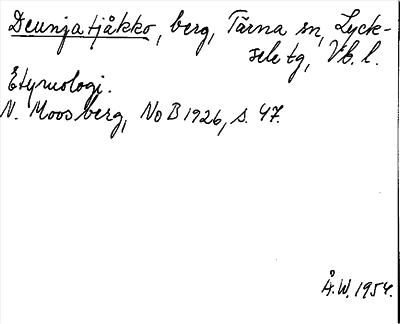 Deunjatjåkko, berg, Tärna sn, Lyck-
sele tg, Vb. l.
Etymologi.
N. Moosberg, NoB 1926, s. 47.
Å.W. 1954.